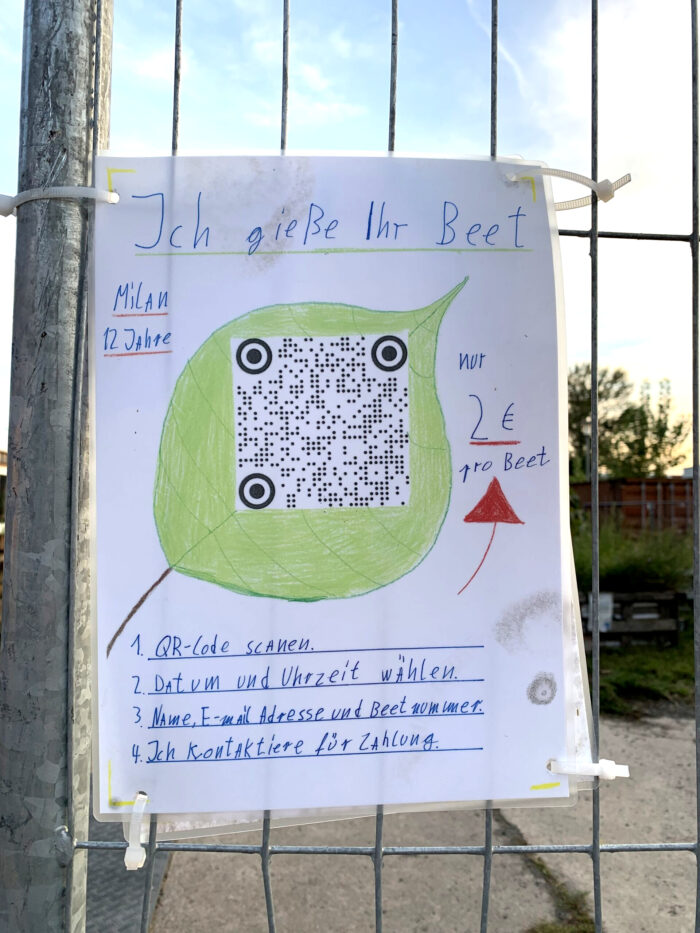 Ich gieße Ihr Beet
Milan
12 Jahre
nur
2 €
pro Beet
1. QR-Code scanen.
2. Datum und Uhrzeit wählen.
3. Name, E-mail Adresse und Beetnummer.
4. Ich kontaktiere für Zahlung.